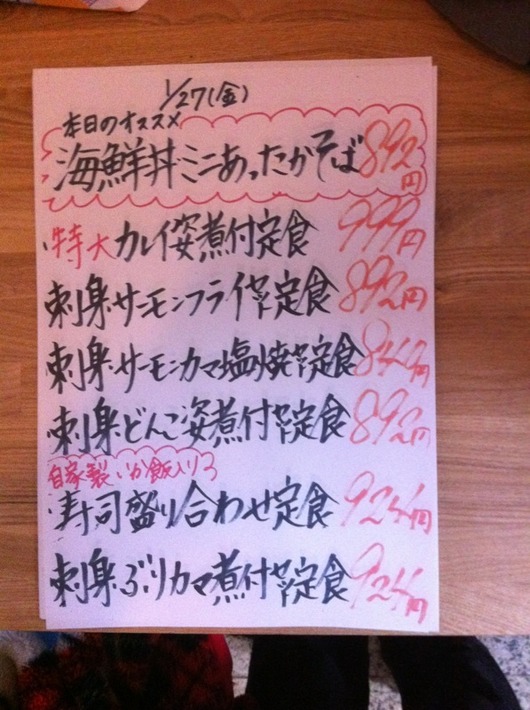 1/27(金)
本日のオススメ
海鮮丼・ミニあったかそば 892円
特大カレイ姿煮付定食 999円
刺身・サーモンフライ定食 892円
刺身・サーモンカマ塩焼定食 円
刺身・どんこ姿煮付定食 892円
自家製いか飯入り
寿司盛り合わせ定食 924円
刺身・ぶりカマ煮付定食 924円